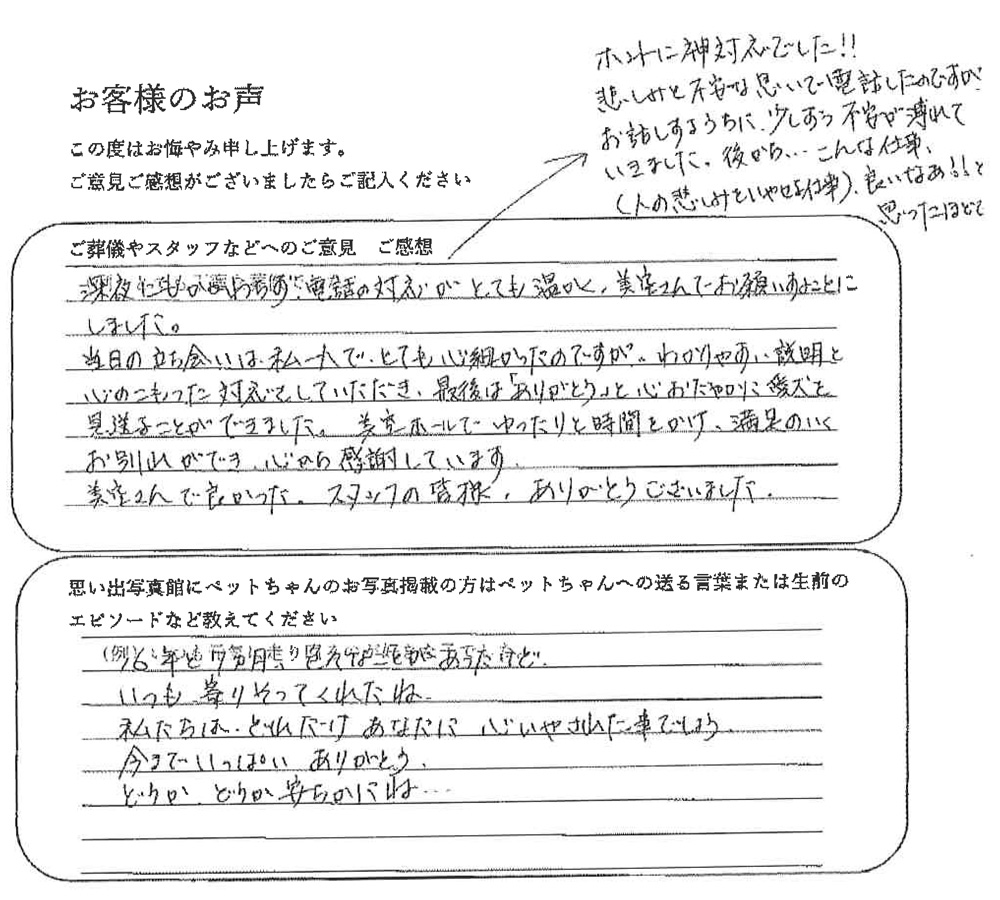 お客様のお声
この度はお悔やみ申し上げます。
ご意見ご感想がございましたらご記入ください
ホントに神対応でした!!
悲しみと不安な思いで電話したのですが、
お話しするうちに、少しずつ不安が薄れて
いきました。後から… こんな仕事、
(人の悲しみをいやせる仕事)、良いなあ!!と
思ったほどで
ご葬儀やスタッフなどへのご意見 ご感想
深夜にもかかわらず、電話の対応がとても温かく、美空さんでお願いすることに
しました。
当日の立ち会いは、私一人で、とても心細かったのですが、わかりやすい説明と
心のこもった対応をしていただき、最後は「ありがとう」と心おだやかに愛犬を
見送ることができました。 美空ホールでゆったりと時間をかけ、満足のいく
お別れができ、心から感謝しています。
美空さんで良かった。スタッフの皆様、ありがとうございました。
思い出写真館にペットちゃんのお写真掲載の方はペットちゃんへの送る言葉または生前の
エピソードなど教えてください
(例)
16年と
いろいろあったけど、
いつも寄りそってくれたね。
私たちは、どれだけあなたに心いやされた事でしょう。
今までいっぱいありがとう。
どうか、どうか安らかにね…